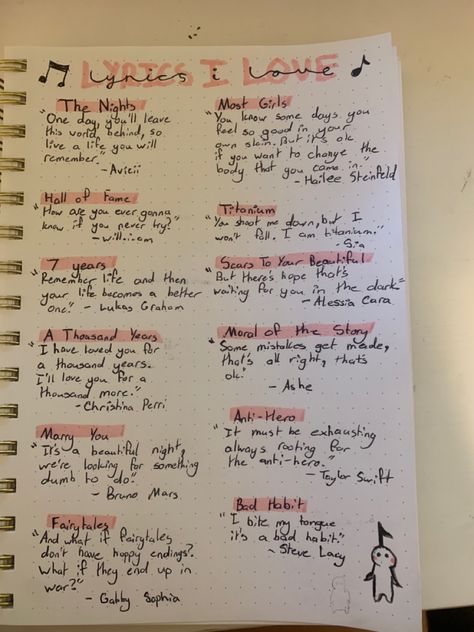 Lyrics i Love
The Nights
"One day, you'll leave
this world behind, so
live a life you will
remember."
- Avicii
Hall of Fame
"How are you ever gonna
know if you never try?"
- Will.i.am
7 years
"Remember life and then
your life becomes a better
one." - Lukas Graham
A Thousand Years
"I have loved you for
a thousand years.
I'll love you for a
thousand more."
- Christina Perri
Marry You
"It's a beautiful night,
we're looking for something
dumb to do."
- Bruno Mars
Fairytales
"And what if fairytales
don't have happy endings?
What if they end up in
war?"
- Gabby Sophia
Most Girls
"You know some days you
feel so good in your
own skin. But it's ok
if you want to change the
body that you came in."
- Hailee Steinfeld
Titanium
"You shoot me down, but I
won't fall. I am titanium."
- Sia
Scars To Your Beautiful
"But there's hope that's
waiting for you in the dark"
- Alessia Cara
Moral of the Story
"Some mistakes get made,
that's all right, that's
ok."
- Ashe
Anti-Hero
"It must be exhausting
always rooting for
the anti-hero."
- Taylor Swift
Bad Habit
"I bite my tongue
it's a bad habit."
- Steve Lacy